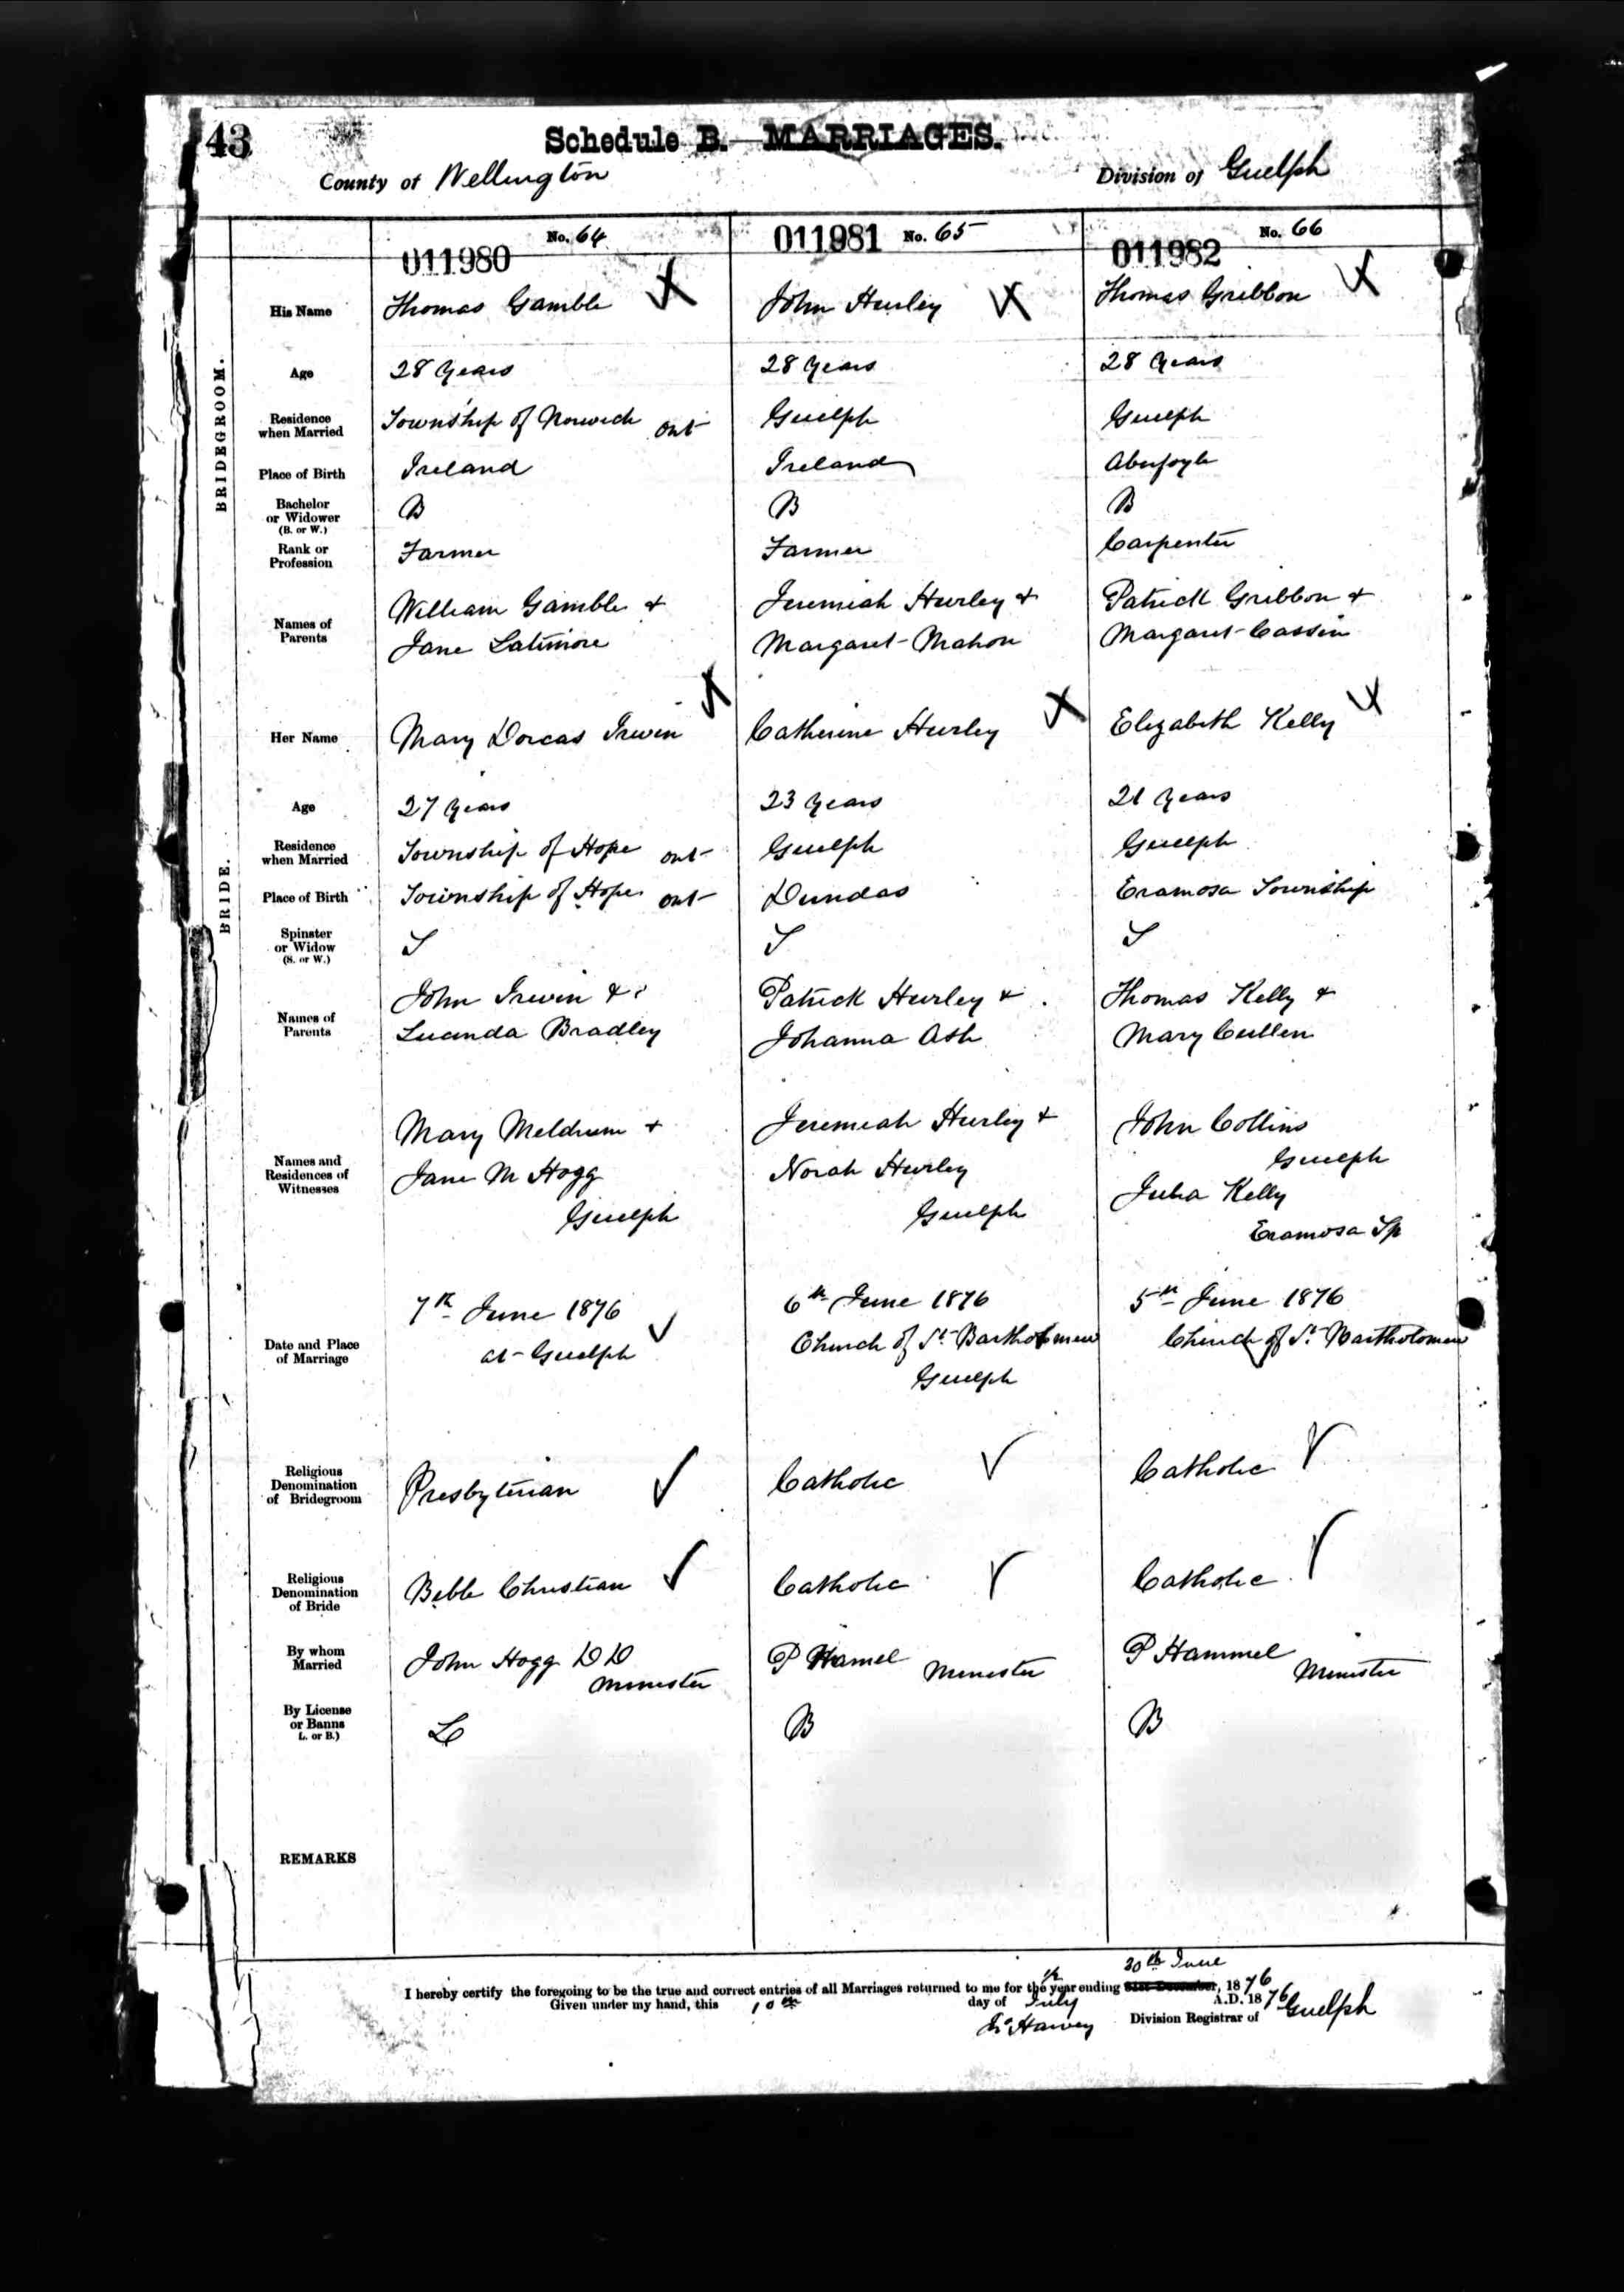 43
Schedule B.—MARRIAGES.
County of Wellington
Division of Guelph
No. 64
No. 65
No. 66
011980
011981
011982
BRIDEGROOM.
His Name
Thomas Gamble
John Hurley
Thomas Gribbon
Age
28 years
28 years
28 years
Residence when Married
Township of Norwich Ont
Guelph
Guelph
Place of Birth
Ireland
Ireland
Aberfoyle
Bachelor or Widower (B. or W.)
B
B
B
Rank or Profession
Farmer
Farmer
Carpenter
Names of Parents
William Gamble &
Jane Latimore
Jeremiah Hurley &
Margaret Mahon
Patrick Gribbon &
Margaret Cassin
BRIDE.
Her Name
Mary Dorcas Irwin
Catherine Hurley
Elizabeth Kelly
Age
27 years
23 years
21 years
Residence when Married
Township of Hope Ont
Guelph
Guelph
Place of Birth
Township of Hope Ont
Dundas
Eramosa Township
Spinster or Widow (S. or W.)
S
S
S
Names of Parents
John Irwin &
Lucinda Bradley
Patrick Hurley &
Johanna Ash
Thomas Kelly &
Mary Cullen
Names and Residences of Witnesses
Mary Meldrum &
Jane M Hogg
Guelph
Jeremiah Hurley &
Norah Hurley
Guelph
John Collins
Guelph
Julia Kelly
Eramosa Tp
Date and Place of Marriage
7th June 1876
at Guelph
6th June 1876
Church of St. Bartholomew
Guelph
5th June 1876
Church of St. Bartholomew
Religious Denomination of Bridegroom
Presbyterian
Catholic
Catholic
Religious Denomination of Bride
Bible Christian
Catholic
Catholic
By whom Married
John Hogg D D
Minister
P Hamel Minister
P Hammel Minister
By License or Banns L. or B.)
L
B
B
REMARKS
30th June
I hereby certify the foregoing to be the true and correct entries of all Marriages returned to me for the ½ year ending 31st December, 1876
Given under my hand, this 10th day of July A.D. 1876
Jno Harvey Division Registrar of Guelph